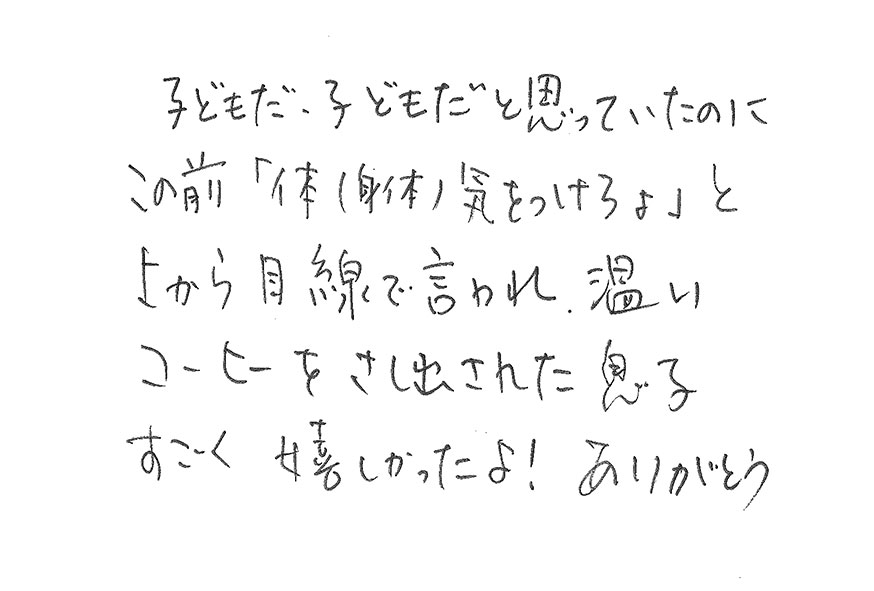 子どもだ、子どもだと思っていたのに
この前「体(身体)気をつけろよ」と
上から目線で言われ、温い
コーヒーをさし出された息子
すごく嬉しかったよ! ありがとう